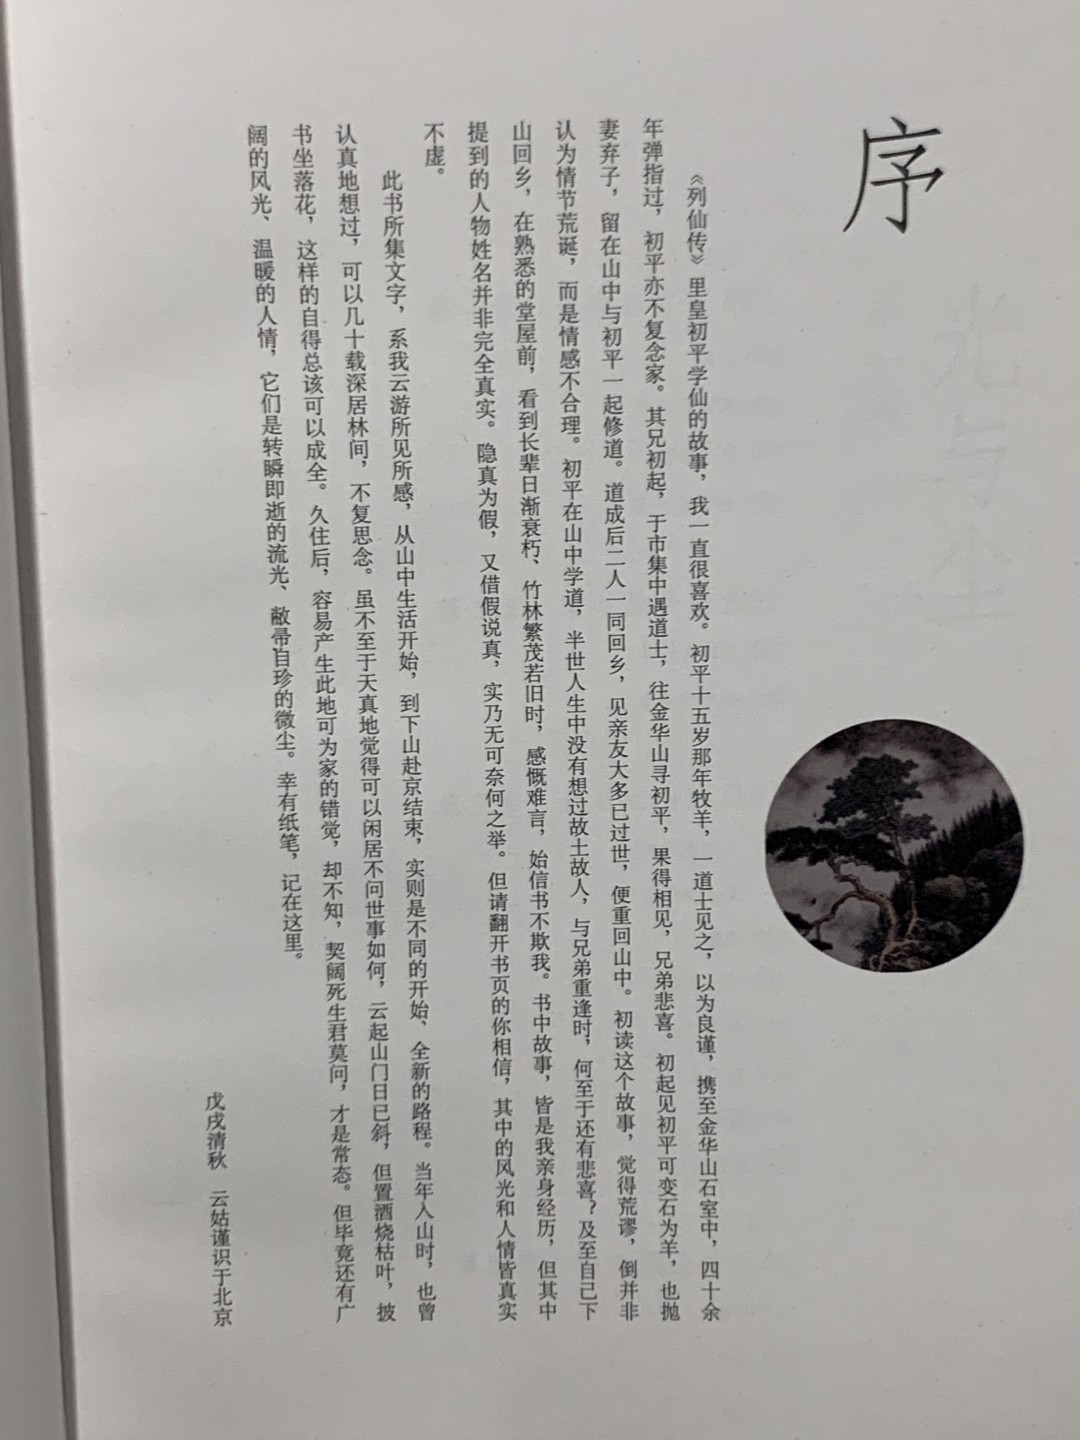 序
《列仙传》里皇初平学仙的故事，我一直很喜欢。初平十五岁那年牧羊，一道士见之，以为良谨，携至金华山石室中，四十余
年弹指过，初平亦不复念家。其兄初起，于市集中遇道士，往金华山寻初平，果得相见，兄弟悲喜。初起见初平可变石为羊，也抛
妻弃子，留在山中与初平一起修道。道成后二人一同回乡，见亲友大多已过世，便重回山中。初读这个故事，觉得荒谬，倒并非
认为情节荒诞，而是情感不合理。初平在山中学道，半世人生中没有想过故土故人，与兄弟重逢时，何至于还有悲喜？及至自己下
山回乡，在熟悉的堂屋前，看到长辈日渐衰朽、竹林繁茂若旧时，感慨难言，始信书不欺我。书中故事，皆是我亲身经历，但其中
提到的人物姓名并非完全真实。隐真为假，又借假说真，实乃无可奈何之举。但请翻开书页的你相信，其中的风光和人情皆真实
不虚。
此书所集文字，系我云游所见所感，从山中生活开始，到下山赴京结束，实则是不同的开始、全新的路程。当年入山时，也曾
认真地想过，可以几十载深居林间，不复思念。虽不至于天真地觉得可以闲居不问世事如何，云起山门日已斜，但置酒烧枯叶，披
书坐落花，这样的自得总该可以成全。久住后，容易产生此地可为家的错觉，却不知，契阔死生君莫问，才是常态。但毕竟还有广
阔的风光、温暖的人情，它们是转瞬即逝的流光、敝帚自珍的微尘。幸有纸笔，记在这里。
戊戌清秋 云姑谨识于北京
光与尘